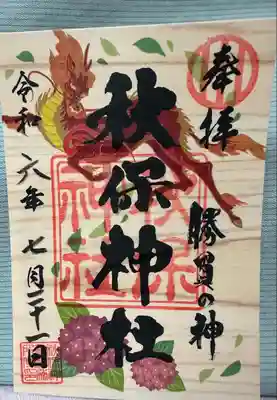 奉拝
勝負の神
秋保神社
令和六年七月二十一日
秋保
神社